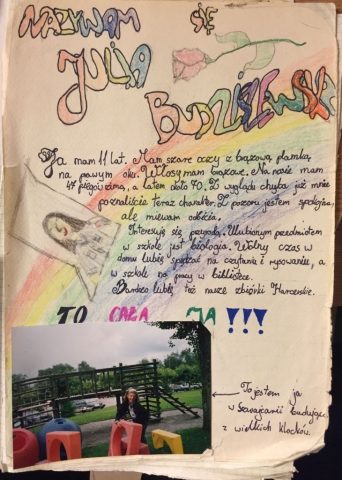 NAZYWAM SIĘ
JULIA
BUDZISZEWSKA
Ja mam 11 lat. Mam szare oczy z brązową plamką
na prawym oku. Włosy mam brązowe. Na nosie mam
47 piegów zimą, a latem około 70. Z wyglądu chyba już mnie
poznaliście teraz charakter. Z pozoru jestem spokojna,
ale miewam odbicia.
Interesuję się przyrodą. Ulubionym przedmiotem
w szkole jest biologia. Wolny czas w
domu lubię spędzać na czytaniu i rysowaniu, a
w szkole na pracy w bibliotece.
Bardzo lubię też nasze zbiórki Harcerskie.
TO CAŁA JA!!!
To jestem ja
w Szwajcarii budująca
z wielkich klocków.